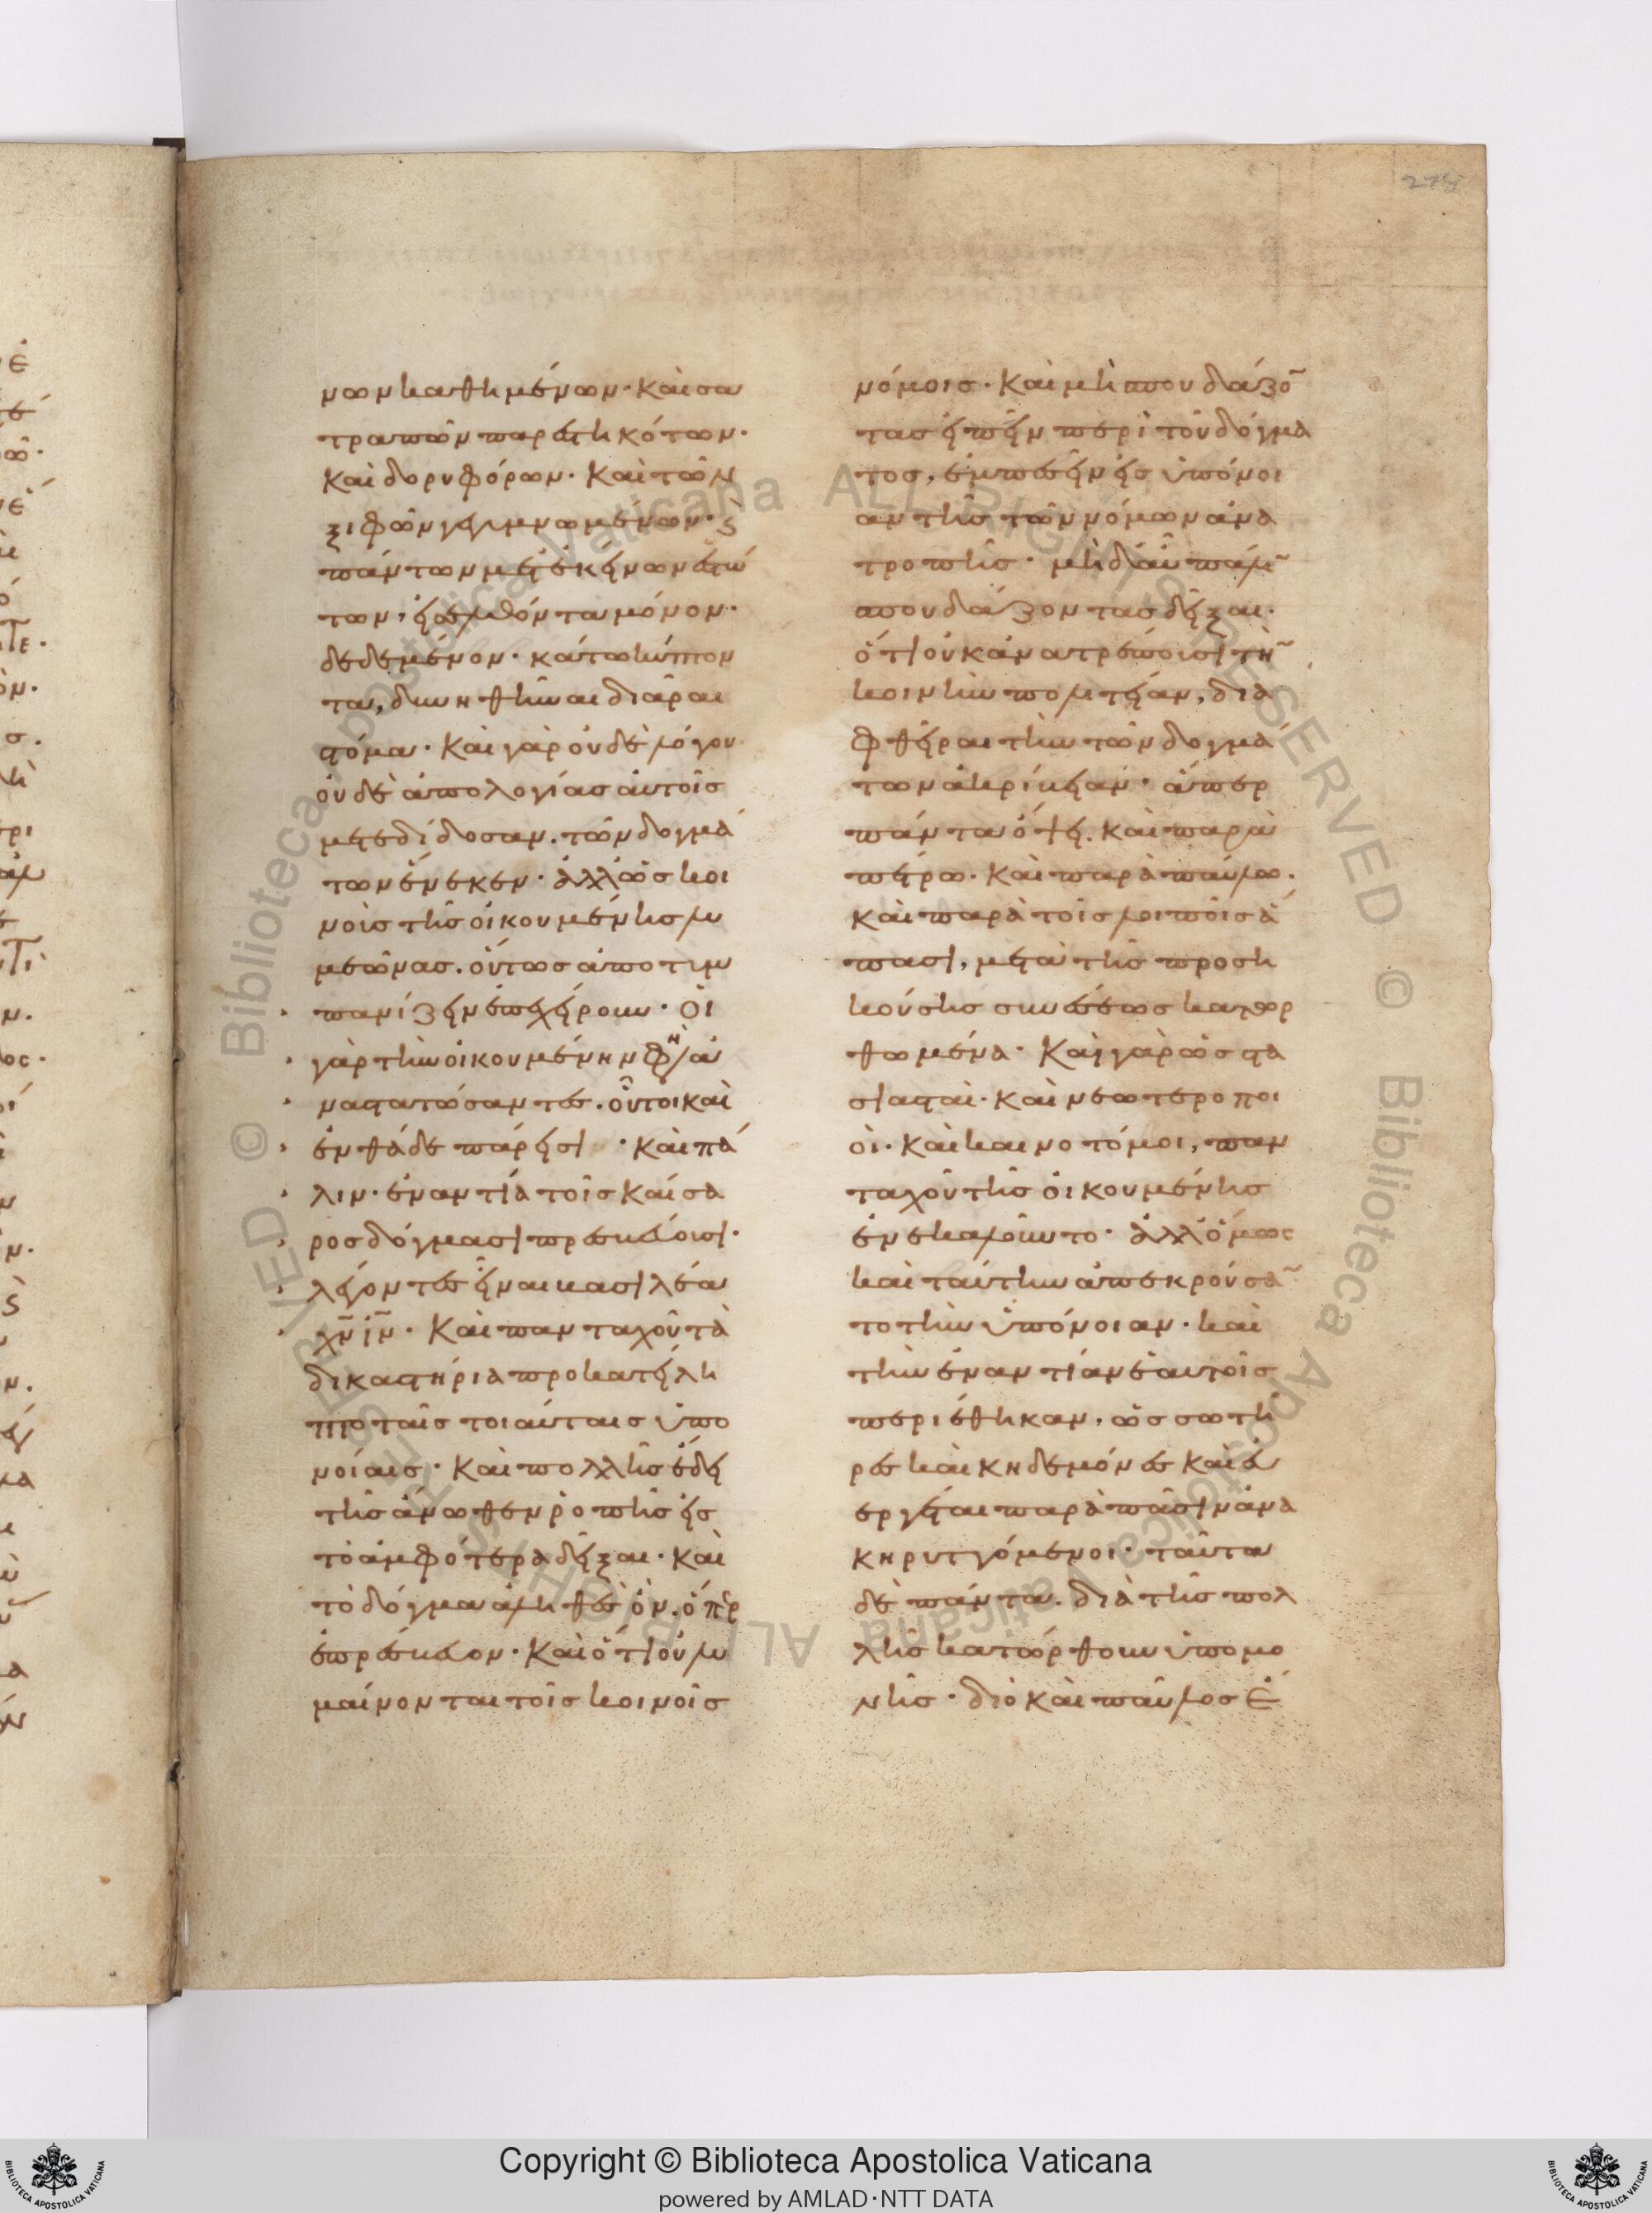 274
νων καθημένων· καὶ σα
τραπῶν παρεστηκότων·
καὶ δορυφόρων· καὶ τῶν
ξιφῶν γεγυμνωμένων· κ(αὶ)
πάντων μετ' ἐκείνων ἑστώ
των, εἰσελθόντα μόνον·
δεδεμένον· κάτω κύπτον
τα, δυνηθῆναι διᾶραι
στόμα· Καὶ γὰρ οὐδὲ λόγου
οὐδὲ ἀπολογίας αὐτοῖς
μετεδίδοσαν. τῶν δογμά
των ἕνεκεν· ἀλλ' ὡς κοι
νοὺς τῆς οἰκουμένης λυ
μεῶνας. οὕτως ἀποτυμ
πανίζειν ἐπεχείρουν· Οἱ
γὰρ τὴν οἰκουμένην φη(σὶν) ἀ
ναστατώσαντες. οὗτοι καὶ
ἐνθάδε πάρεισι· καὶ πά
λιν· ἐναντία τοῖς καίσα
ρος δόγμασι πρεσβεύουσι·
λέγοντες εἶναι βασιλέα
χν ιν· Καὶ πανταχοῦ τὰ
δικαστήρια προκατείλη
πτο ταῖς τοιαύταις ὑπο
νοίαις· καὶ πολλῆς ἔδει
τῆς ἄνωθεν ῥοπῆς εἰς
τὸ ἀμφότερα δεῖξαι· καὶ
τὸ δόγμα ἀληθὲς ὄν. ὅπερ
ἐπρέσβευον· καὶ ὅτι οὐ λυ
μαίνονται τοῖς κοινοῖς
νόμοις· καὶ μὴ σπουδάζο̄
τας εἰπεῖν περὶ τοῦ δόγμα
τος, ἐμπεσεῖν εἰς ὑπόνοι
αν τῆς τῶν νόμων ἀνα
τροπῆς· μὴ δ' αὖ πάλῑ
σπουδάζοντας δεῖξαι·
ὅτι οὐκ ἀνατρέπουσι τὴ̄
κοινὴν πολιτείαν, δια
φθεῖραι τὴν τῶν δογμά
των ἀκρίβειαν· ἅπερ
πάντα ὄψει. καὶ παρὰ
πέτρω. καὶ παρὰ παύλω.
καὶ παρὰ τοῖς λοιποῖς ἅ
πασι, μετὰ τῆς προση
κούσης συνέσεως κατορ
θωμένα· Καὶ γὰρ ὡς στα
σιασταὶ· καὶ νεωτεροποι
οὶ· καὶ καινοτόμοι, παν
ταχοῦ τῆς οἰκουμένης
ἐνεκαλοῦντο· ἀλλ' ὅμως
καὶ ταύτην ἀπεκρούσᾱ
το τὴν ὑπόνοιαν· καὶ
τὴν ἐναντίαν ἑαυτοῖς
περιέθηκαν, ὡς σωτῆ
ρες καὶ κηδεμόνες καὶ εὐ
εργέται παρὰ πᾶσιν ἀνα
κηρυττόμενοι· ταῦτα
δὲ πάντα. διὰ τῆς πολ
λῆς κατώρθουν ὑπομο
νῆς· διὸ καὶ παῦλος ἔ
Copyright © Biblioteca Apostolica Vaticana
powered by AMLAD·NTT DATA